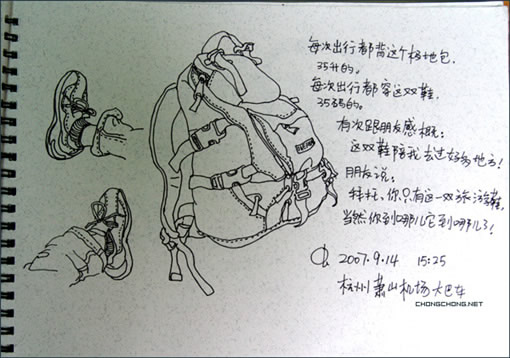 每次出行都背这个极地包,
35升的。
每次出行都穿这双鞋,
35码的。
有次跟朋友感概:
这双鞋陪我去过好多地方!
朋友说:
拜托,你只有这一双旅游鞋,
当然你到哪儿它到哪儿了!
2007.9.14 15:25
杭州萧山机场大巴车
CHONGCHONG.NET